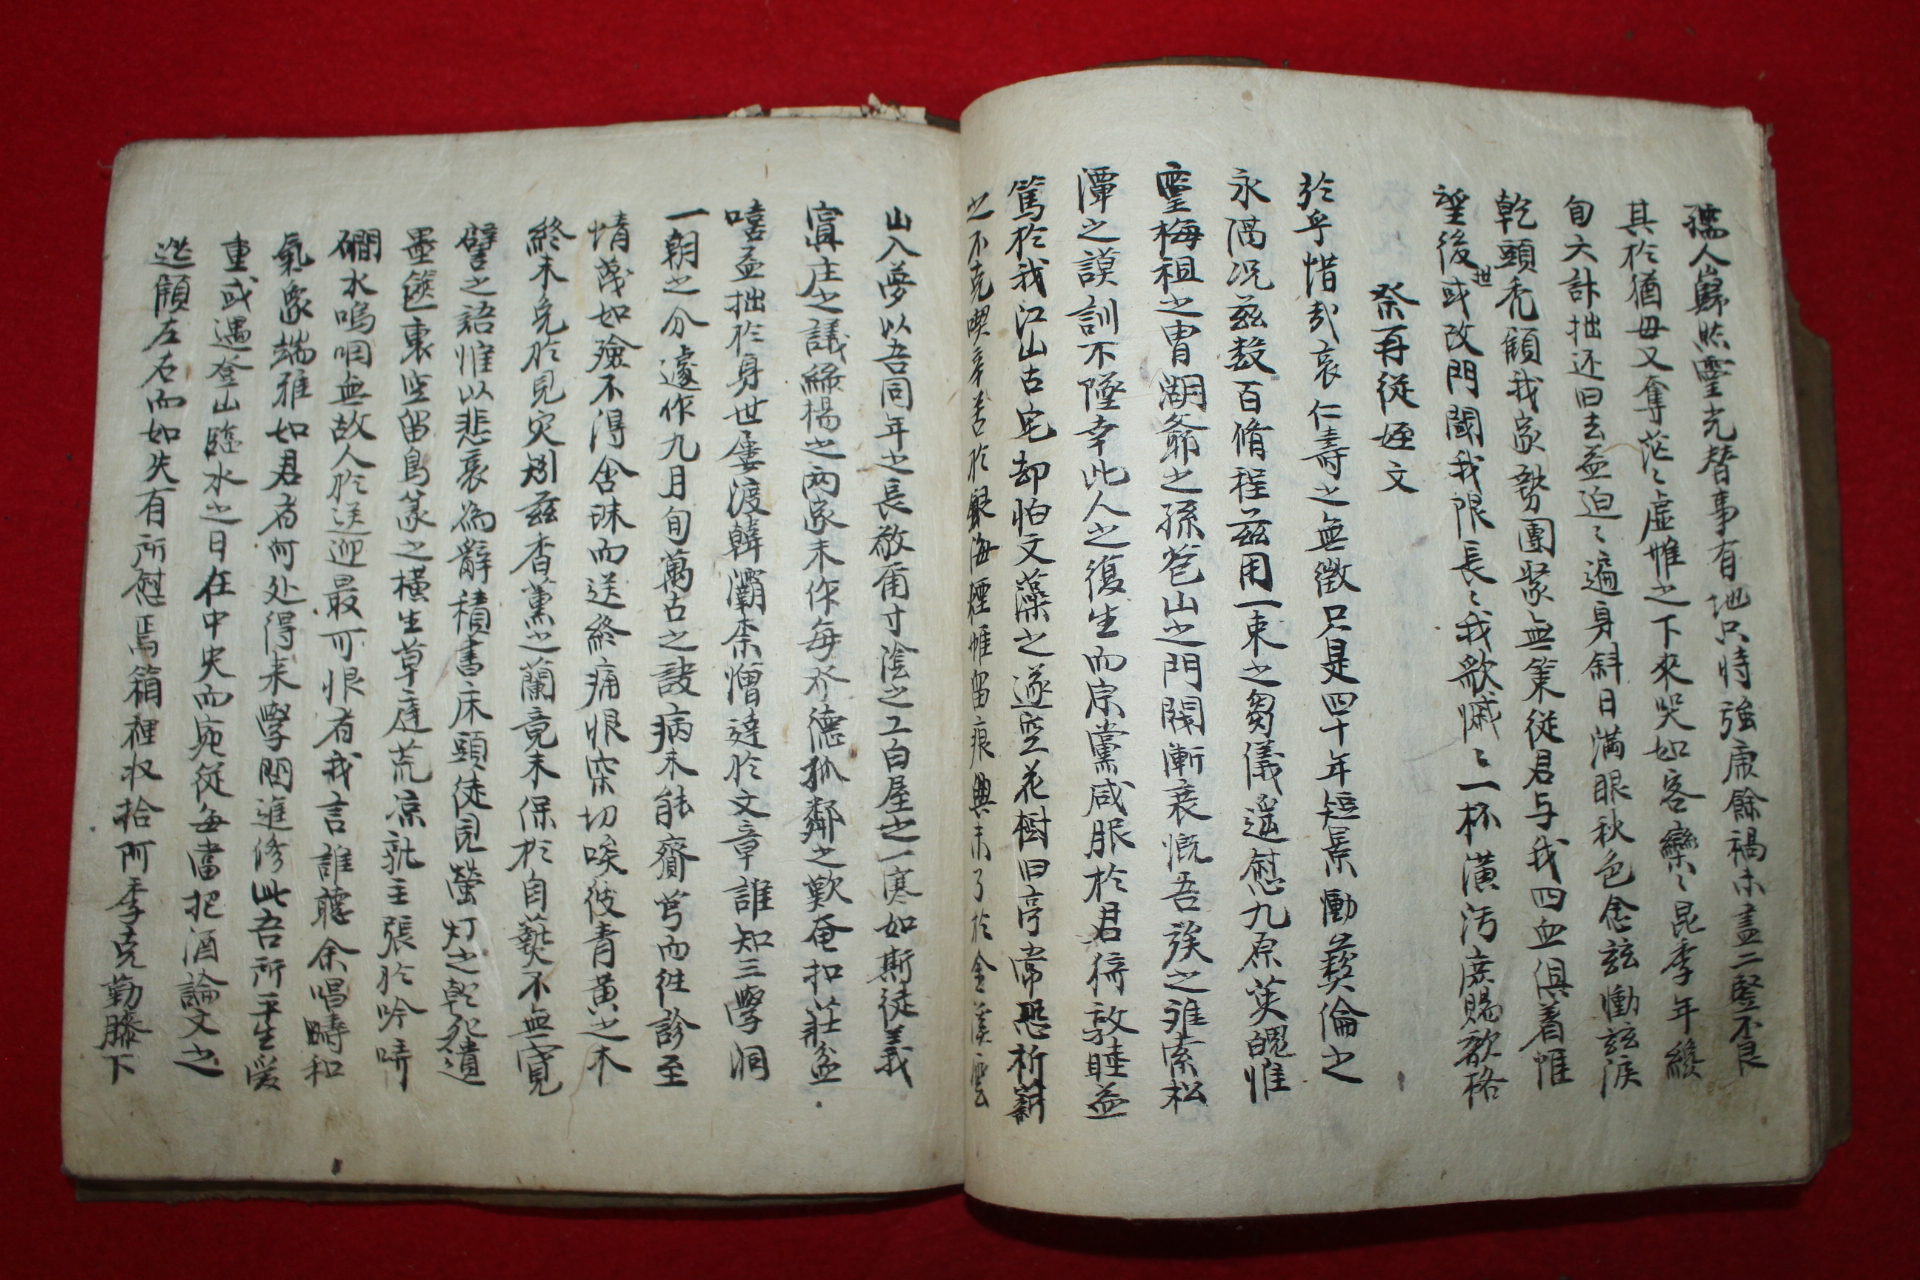 孺人巋然靈光替事有地只恃強康餘禍未盡二竪不良
其於猶母又奪茫〻虛帷之下來哭如客欒〻昆季年纔
旬大計拙还旧去益迫〻遍身斜日滿眼秋色念玆慟玆淚
乾頭禿顧我家勢團聚無策從君与我四血俱着惟
望後世或改門閭我限長〻我歌慽〻一杯潢汚庶賜歆格
祭再從姪文
於乎惜哉哀仁壽之無徵只是四十年短景慟彛倫之
永隔况玆数百脩程玆用一束之蒭儀遥慰九原英魄惟
靈梅祖之胄湖爺之孫蒼山之門閥漸衰慨吾族之誰索松
潭之謨訓不墜幸此人之復生而宗黨咸服於君待敦睦益
篤於我江山古宅却怕文藻之遂空花樹旧亭常恐析薪
之不克喫辛苦於鰕海煙帷留痕與未了於金溪雲
山入夢以吾同年之長敬甫寸陰之工白屋之一寒如斯徒義
寘庄之議緣楊之兩家未作每本德孤鄰之歎奄扣莊盆
嘻益拙於身世屢渡韓灞柰憎達於文章誰知三學洞
一朝之分遽作九月旬萬古之訣病未能齎芎而往診至
情蔑如殮不得含珠而送終痛恨深切唉彼青黃之木
終未免於見灾矧玆杳薰之蘭竟未保於自爇不無寬
譬之語惟以悲哀為辭積書床頭徒見螢灯之乾死遺
墨篋裏空留鳥篆之橫生草庭荒凉孰主張於吟哢
磵水嗚咽無故人於送迎最可恨者我言誰聽余唱疇和
氣象端雅如君者何处得来學問進修此吾所平生愛
重或遇登山臨水之日在中央而宛從每當把酒論文之
筵顧左右而如失有所慰焉箱裡收拾阿季克勤膝下